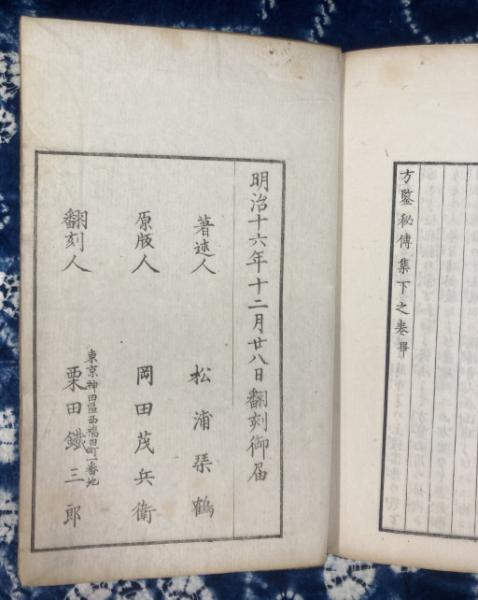 方鑒秘傳集下之卷畢
明治十六年十二月廿八日翻刻御届
著述人 松浦琹鶴
原版人 岡田茂兵衛
東京神田區西福田町一番地
翻刻人 栗田鐵三郎